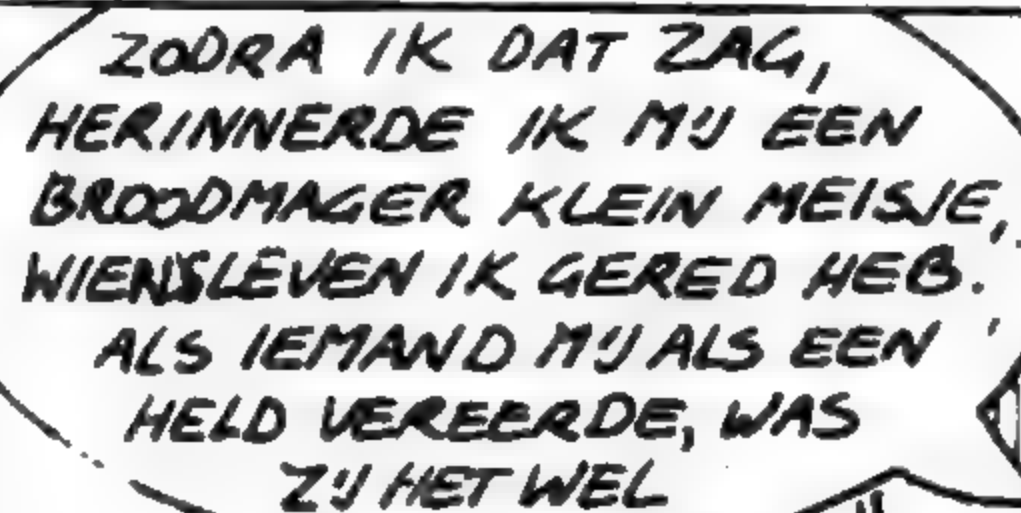 ZODRA IK DAT ZAG,
HERINNERDE IK MIJ EEN
BROODMAGER KLEIN MEISJE,
WIENS LEVEN IK GERED HEB.
ALS IEMAND MIJ ALS EEN
HELD VEREERDE, WAS
ZIJ HET WEL